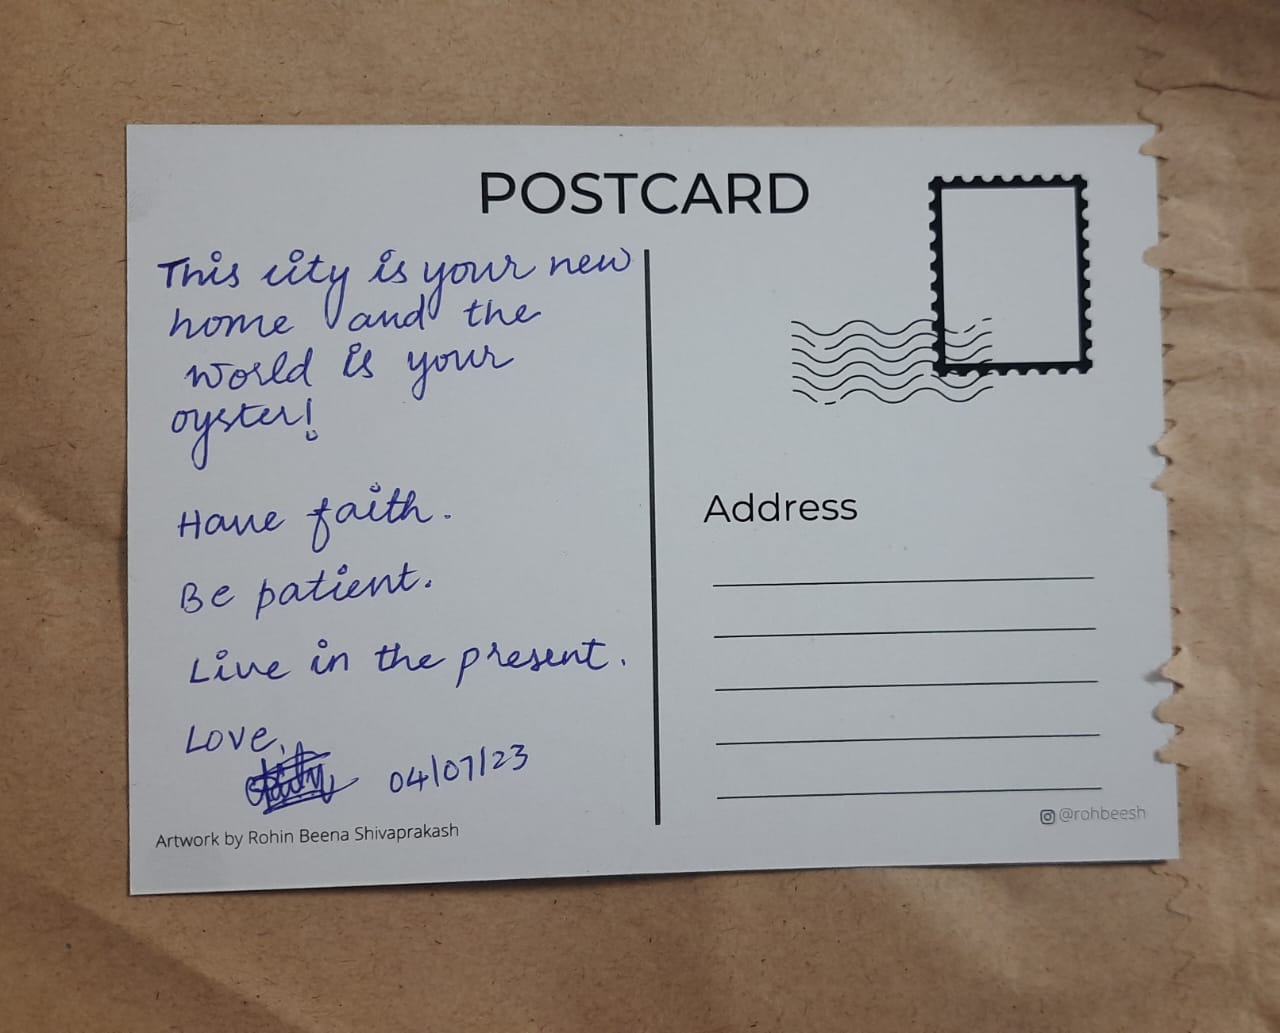 POSTCARD
This city is your new
home and the
world is your
oyster!
Have faith.
Be patient.
Live in the present.
Love,
04/07/23
Artwork by Rohin Beena Shivaprakash
Address
@rohbeesh